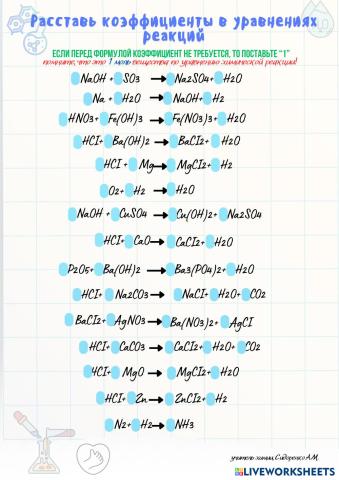 Расставь коэффициенты в уравнениях
реакций
ЕСЛИ ПЕРЕД ФОРМУЛОЙ КОЭФФИЦИЕНТ НЕ ТРЕБУЕТСЯ, ТО ПОСТАВЬТЕ "1"
помните, что это 1 моль вещества по уравнению химической реакции!
NaOH + SO3 → Na2SO4 + H2O
Na + H2O → NaOH + H2
HNO3 + Fe(OH)3 → Fe(NO3)3 + H2O
HCl + Ba(OH)2 → BaCl2 + H2O
HCl + Mg → MgCl2 + H2
O2 + H2 → H2O
NaOH + CuSO4 → Cu(OH)2 + Na2SO4
HCl + CaO → CaCl2 + H2O
P2O5 + Ba(OH)2 → Ba3(PO4)2 + H2O
HCl + Na2CO3 → NaCl + H2O + CO2
BaCl2 + AgNO3 → Ba(NO3)2 + AgCl
HCl + CaCO3 → CaCl2 + H2O + CO2
HCl + MgO → MgCl2 + H2O
HCl + Zn → ZnCl2 + H2
N2 + H2 → NH3
учитель химии Сидоренко А.М.
LIVEWORKSHEETS